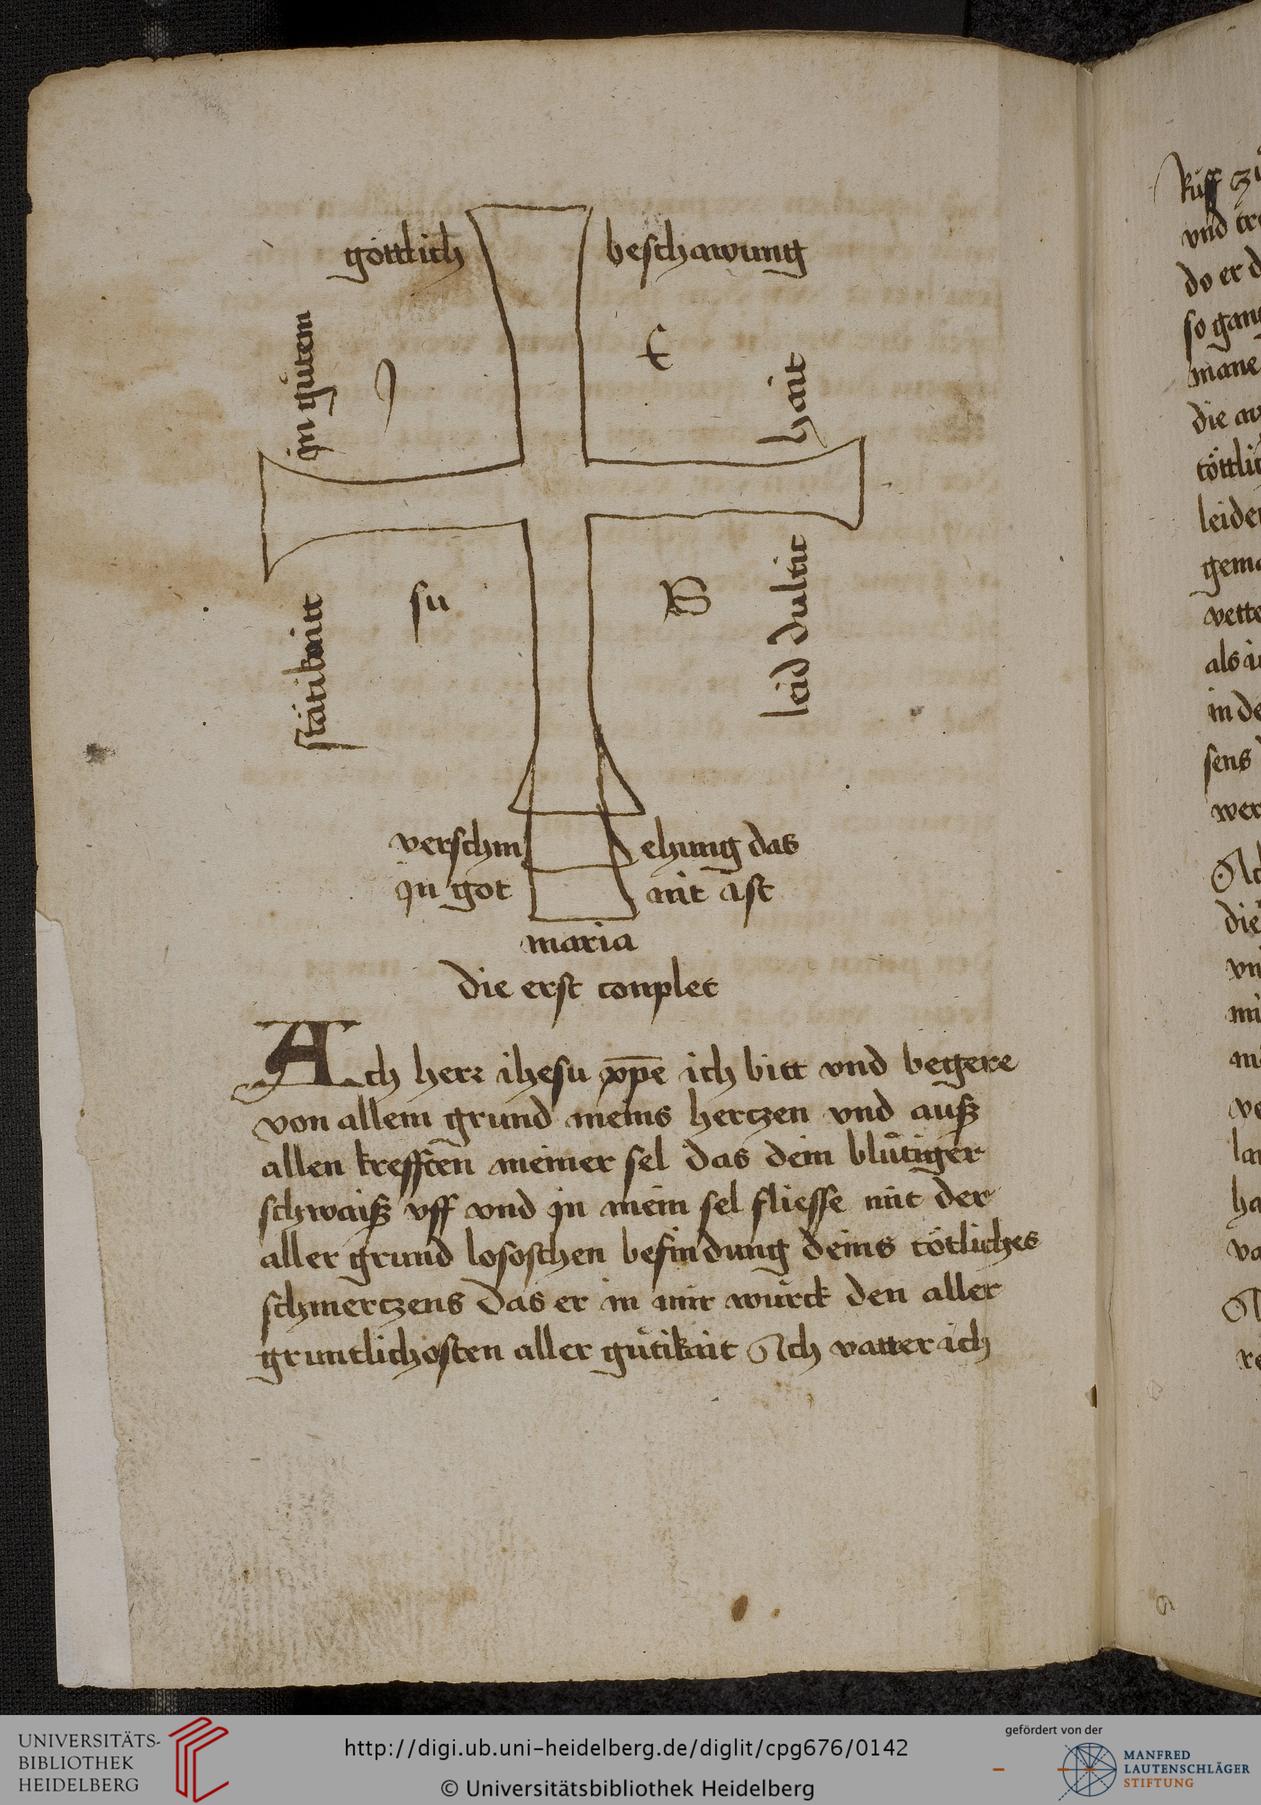 göttlich beschawung
in gůtem
J E
hait
su B
stätikaitt
leid dultic
verschm ehung das
jn got nit ast
maria
die erst conplet
Ach herr ihesu xp̄e ich bitt vnd begere
von allem grund meins hertzen vnd auß
allen krefften meiner sel das dein blůtiger
schwaiß vff vnd jn mein sel fliesse mit der
aller grund lososchen befindung deins tötliches
schmertzens das er in mir würck den aller
gruntlichosten aller gůtikait Ach vatter ich
do er d
so gang
die
leiden
als
in de
sens
wer
UNIVERSITÄTS-
BIBLIOTHEK
HEIDELBERG
http://digi.ub.uni-heidelberg.de/diglit/cpg676/0142
© Universitätsbibliothek Heidelberg
gefördert von der
MANFRED
LAUTENSCHLÄGER
STIFTUNG